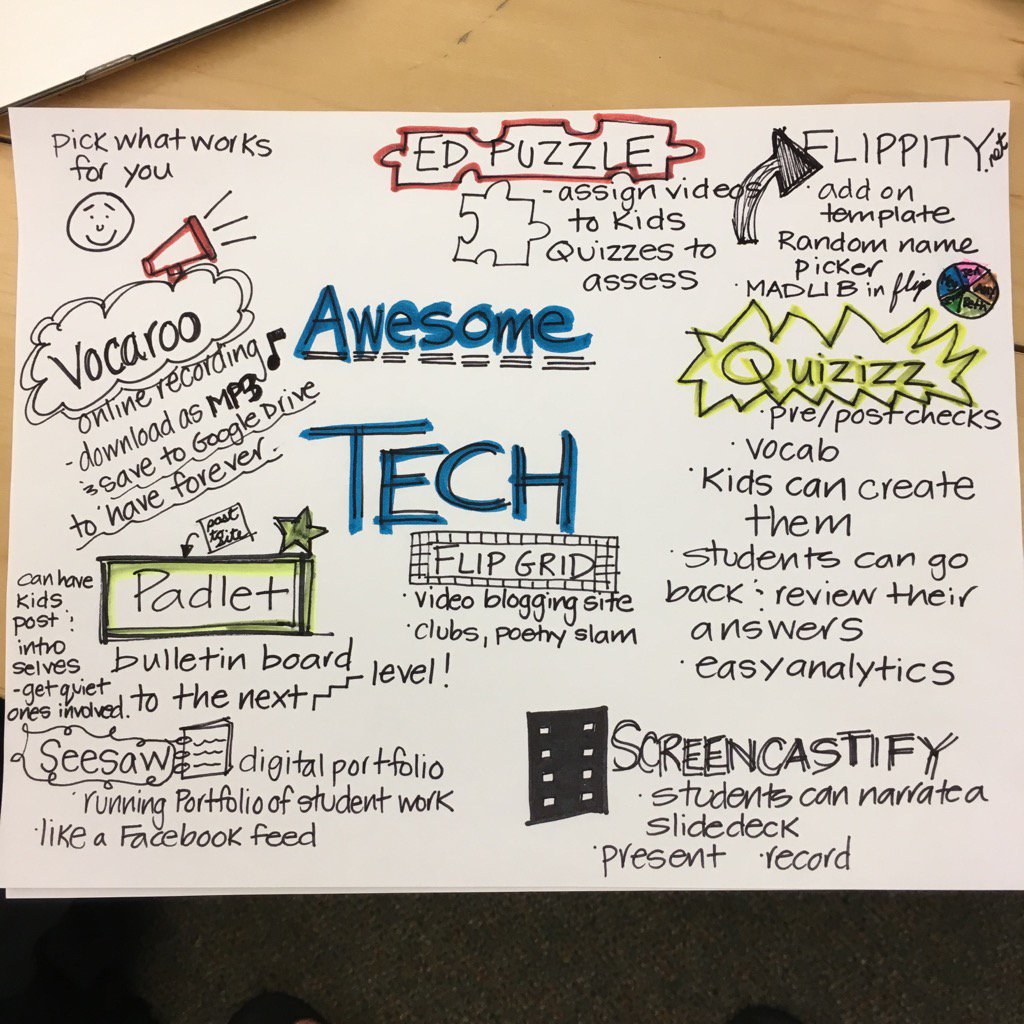 pick what works
for you
ED PUZZLE
-assign videos
to Kids
Quizzes to
assess
FLIPPITY.net
· add on
template
Random name
picker
· MADLIB in flip
Vocaroo
online recording
-download as MP3
save to Google Drive
to have forever.
AWESOME
TECH
Quizizz
·pre/post checks
·vocab
·Kids can create
them
·students can go
back : review their
answers
·easy analytics
post
to site
Padlet
can have
kids
post :
intro
selves
-get quiet
ones involved.
bulletin board
to the next level!
FLIP GRID
·video blogging site
·clubs, poetry slam
Seesaw
digital portfolio
·running Portfolio of student work
·like a Facebook feed
SCREENCASTIFY
·students can narrate a
slidedeck
·present ·record